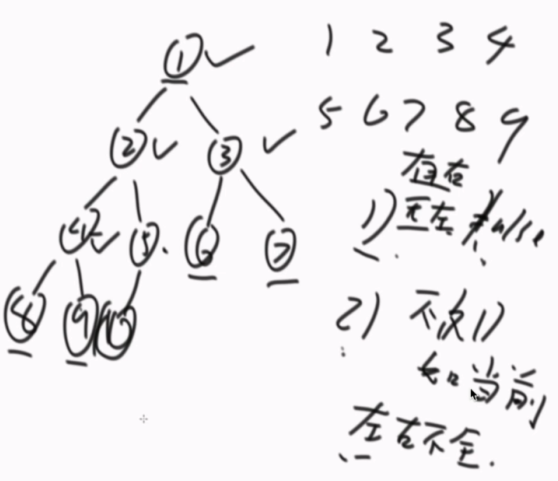 1
2 3
4 5 6 7
8 9 10
1 2 3 4
5 6 7 8 9
有右
1) 无左 false
2) 不仅1)
当前
左右不全.